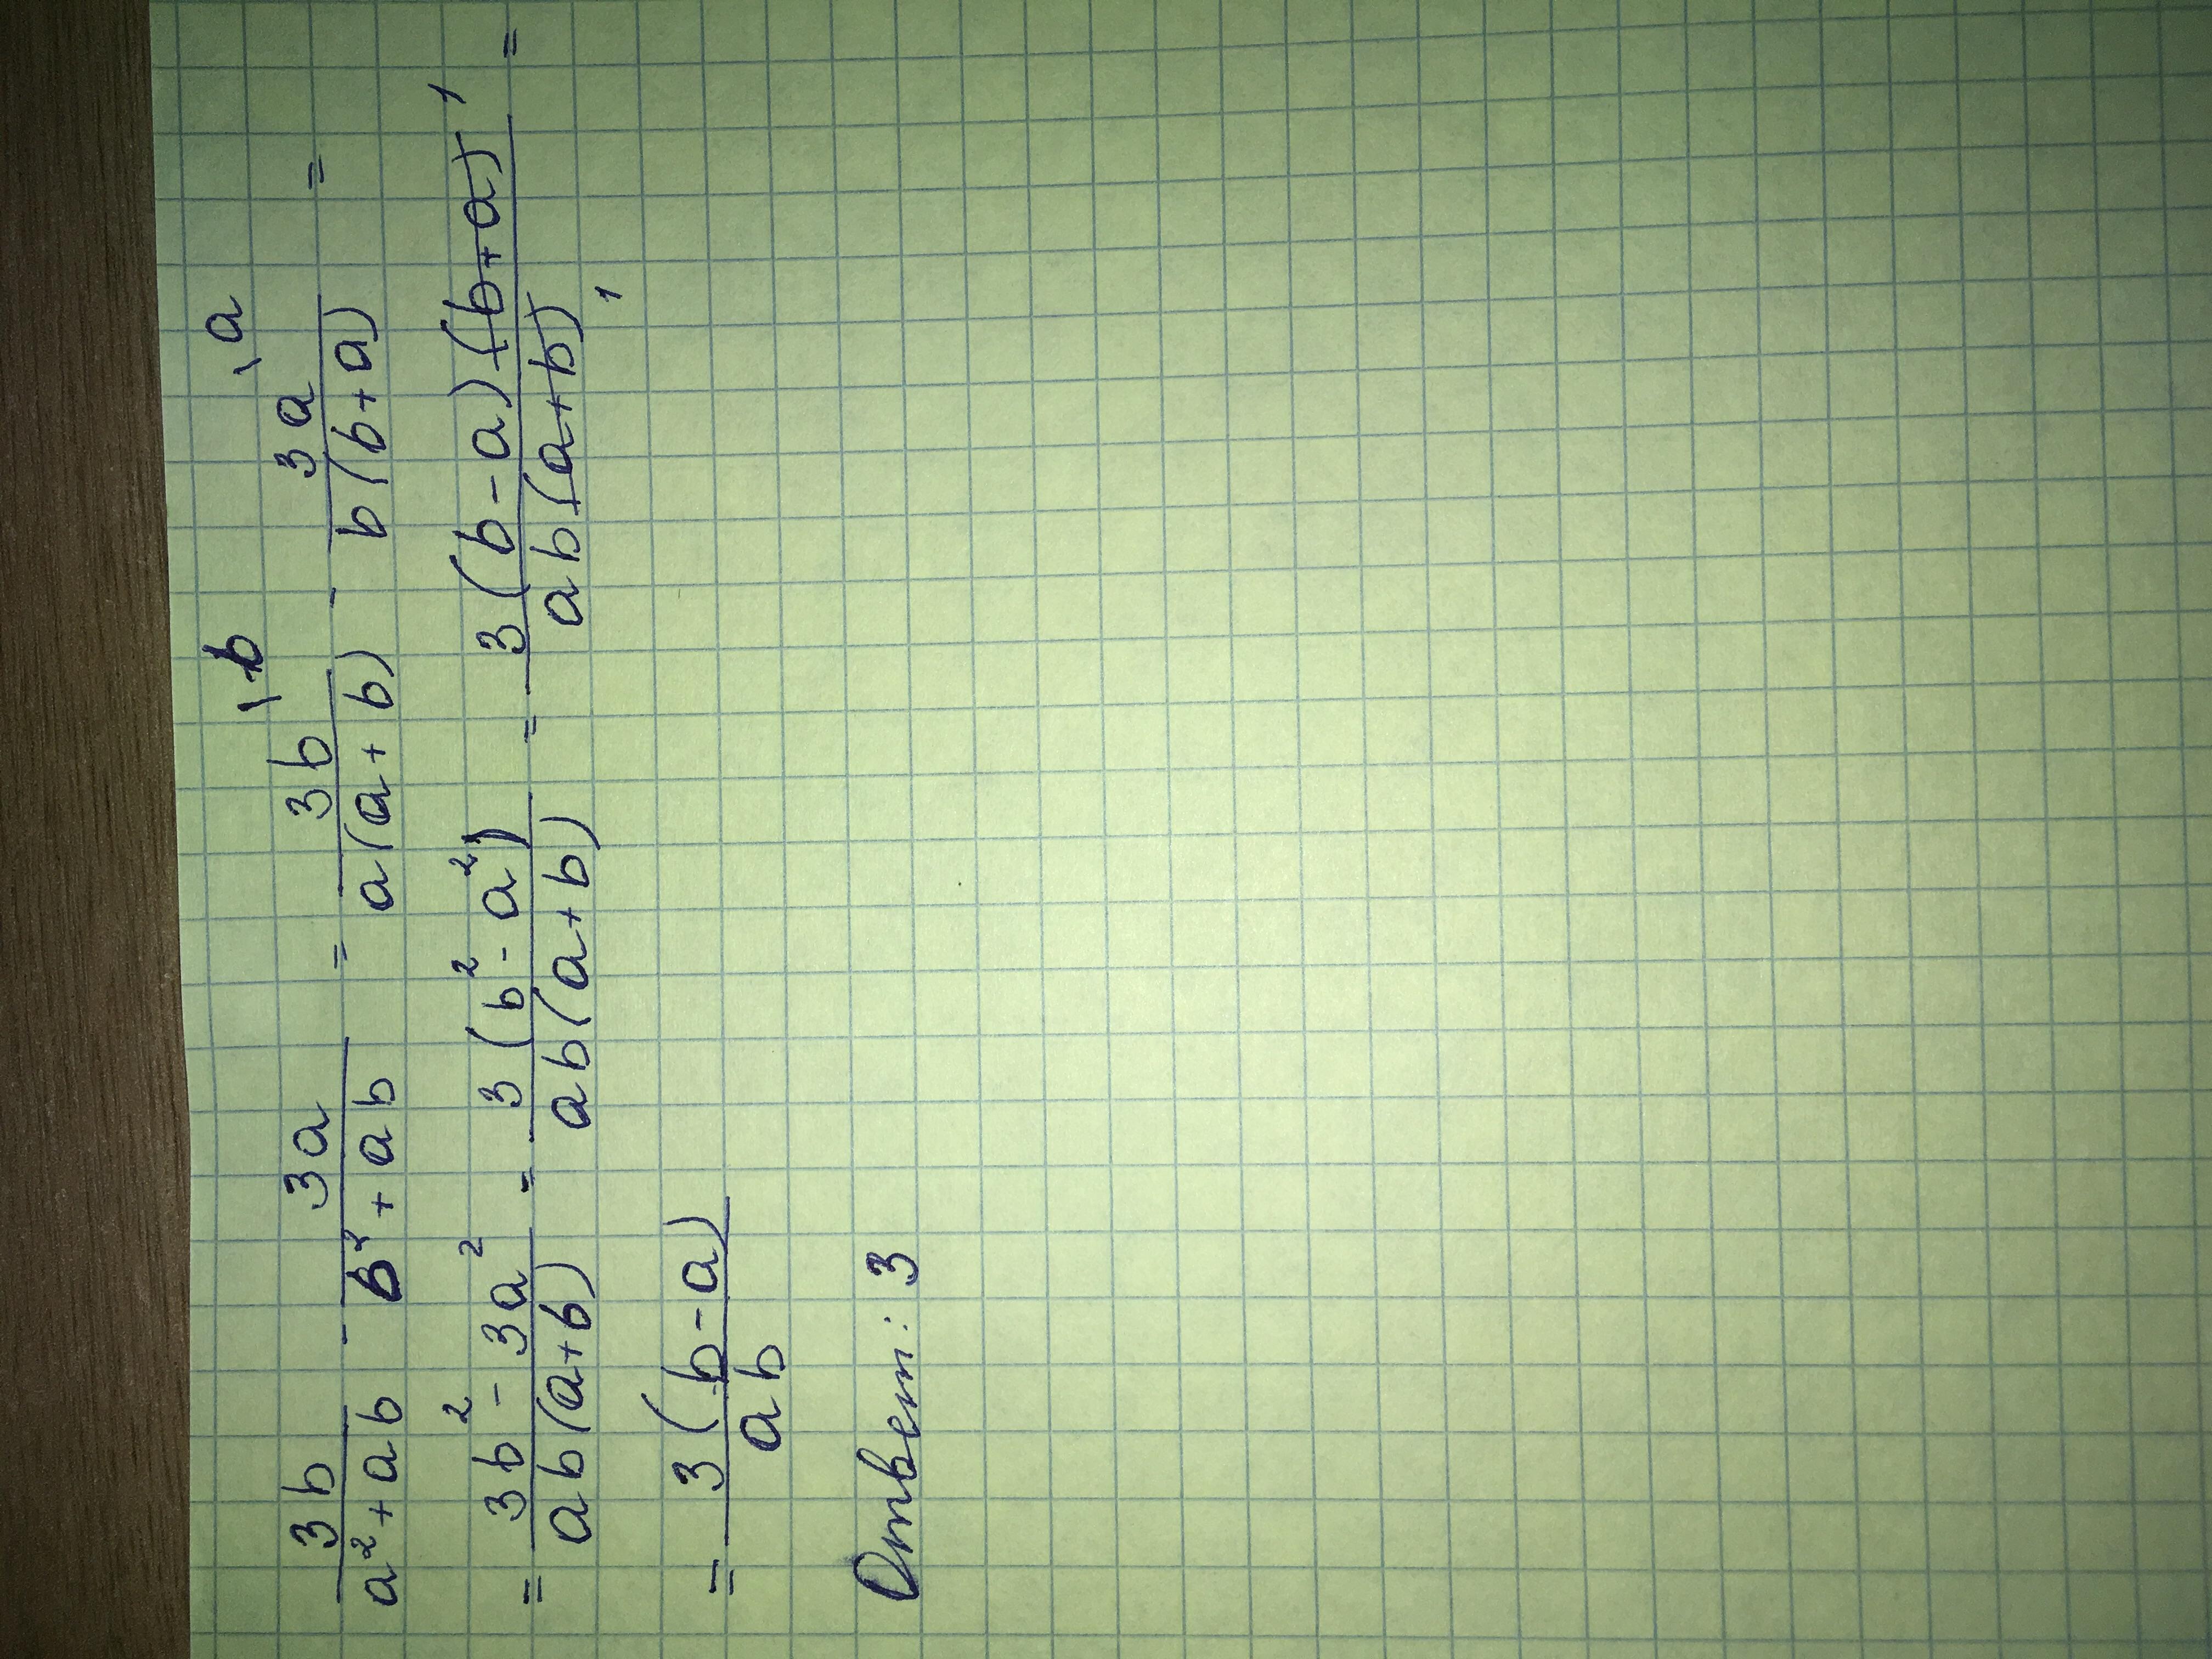 \b \a
3b/(a²+ab) - 3a/(b²+ab) = 3b/(a(a+b)) - 3a/(b(b+a)) =
= (3b²-3a²)/(ab(a+b)) = 3(b²-a²)/(ab(a+b)) = 3(b-a)(b+a)¹/(ab(a+b)₁) =
= 3(b-a)/(ab)
Ответ: 3